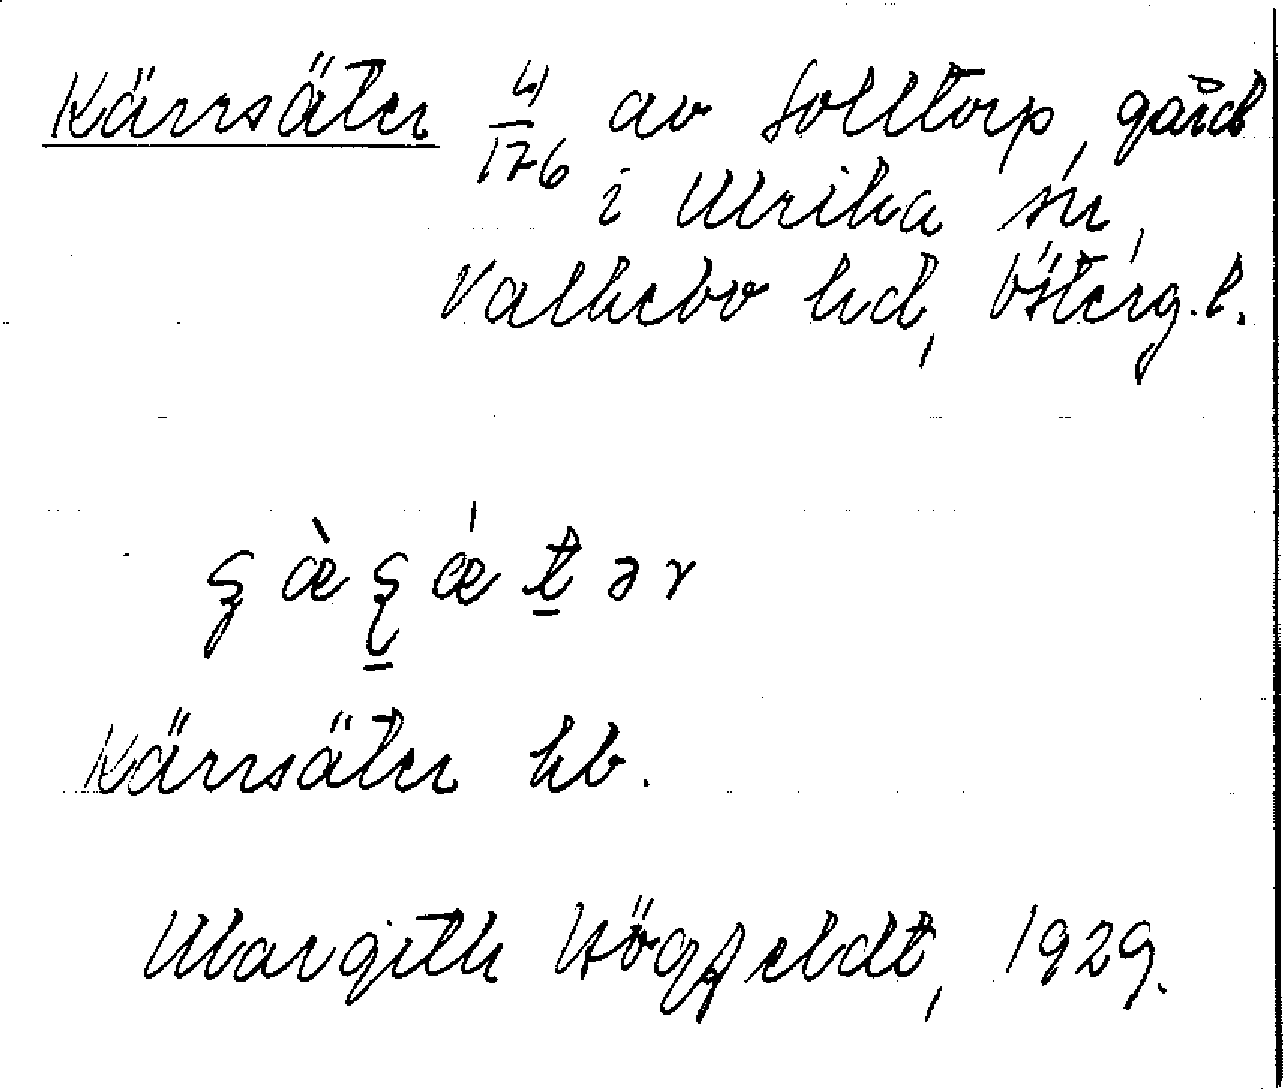 Kärrsäter 4/176 av Solltorp, gård
i Ulrika sn,
Valkebo hd, Österg.l.
Kärrsäter hb.
Margith Högfeldt, 1929.